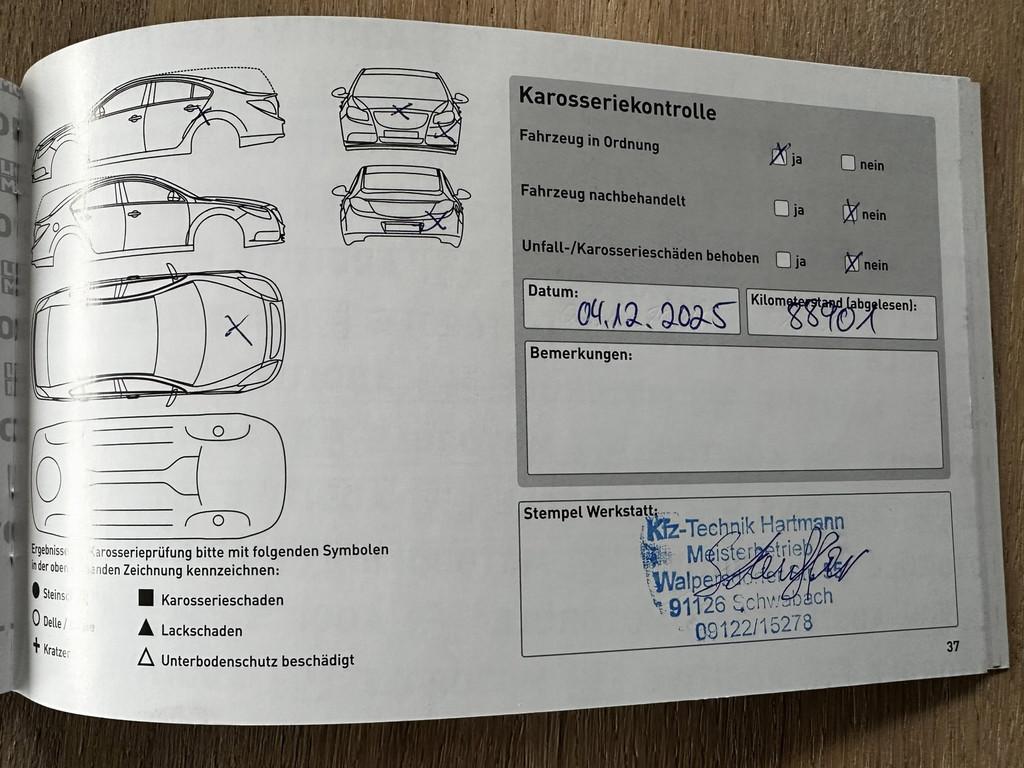 Karosseriekontrolle
Fahrzeug in Ordnung ja nein
Fahrzeug nachbehandelt ja nein
Unfall-/Karosserieschäden behoben ja nein
Datum: 04.12.2025
Kilometerstand (abgelesen): 88901
Bemerkungen:
Stempel Werkstatt:
Kfz-Technik Hartmann
Meisterbetrieb
91126 Schwabach
09122/15278
Karosserieprüfung bitte mit folgenden Symbolen
in der Zeichnung kennzeichnen:
Delle /
Kratzer
Karosserieschaden
Lackschaden
Unterbodenschutz beschädigt
37